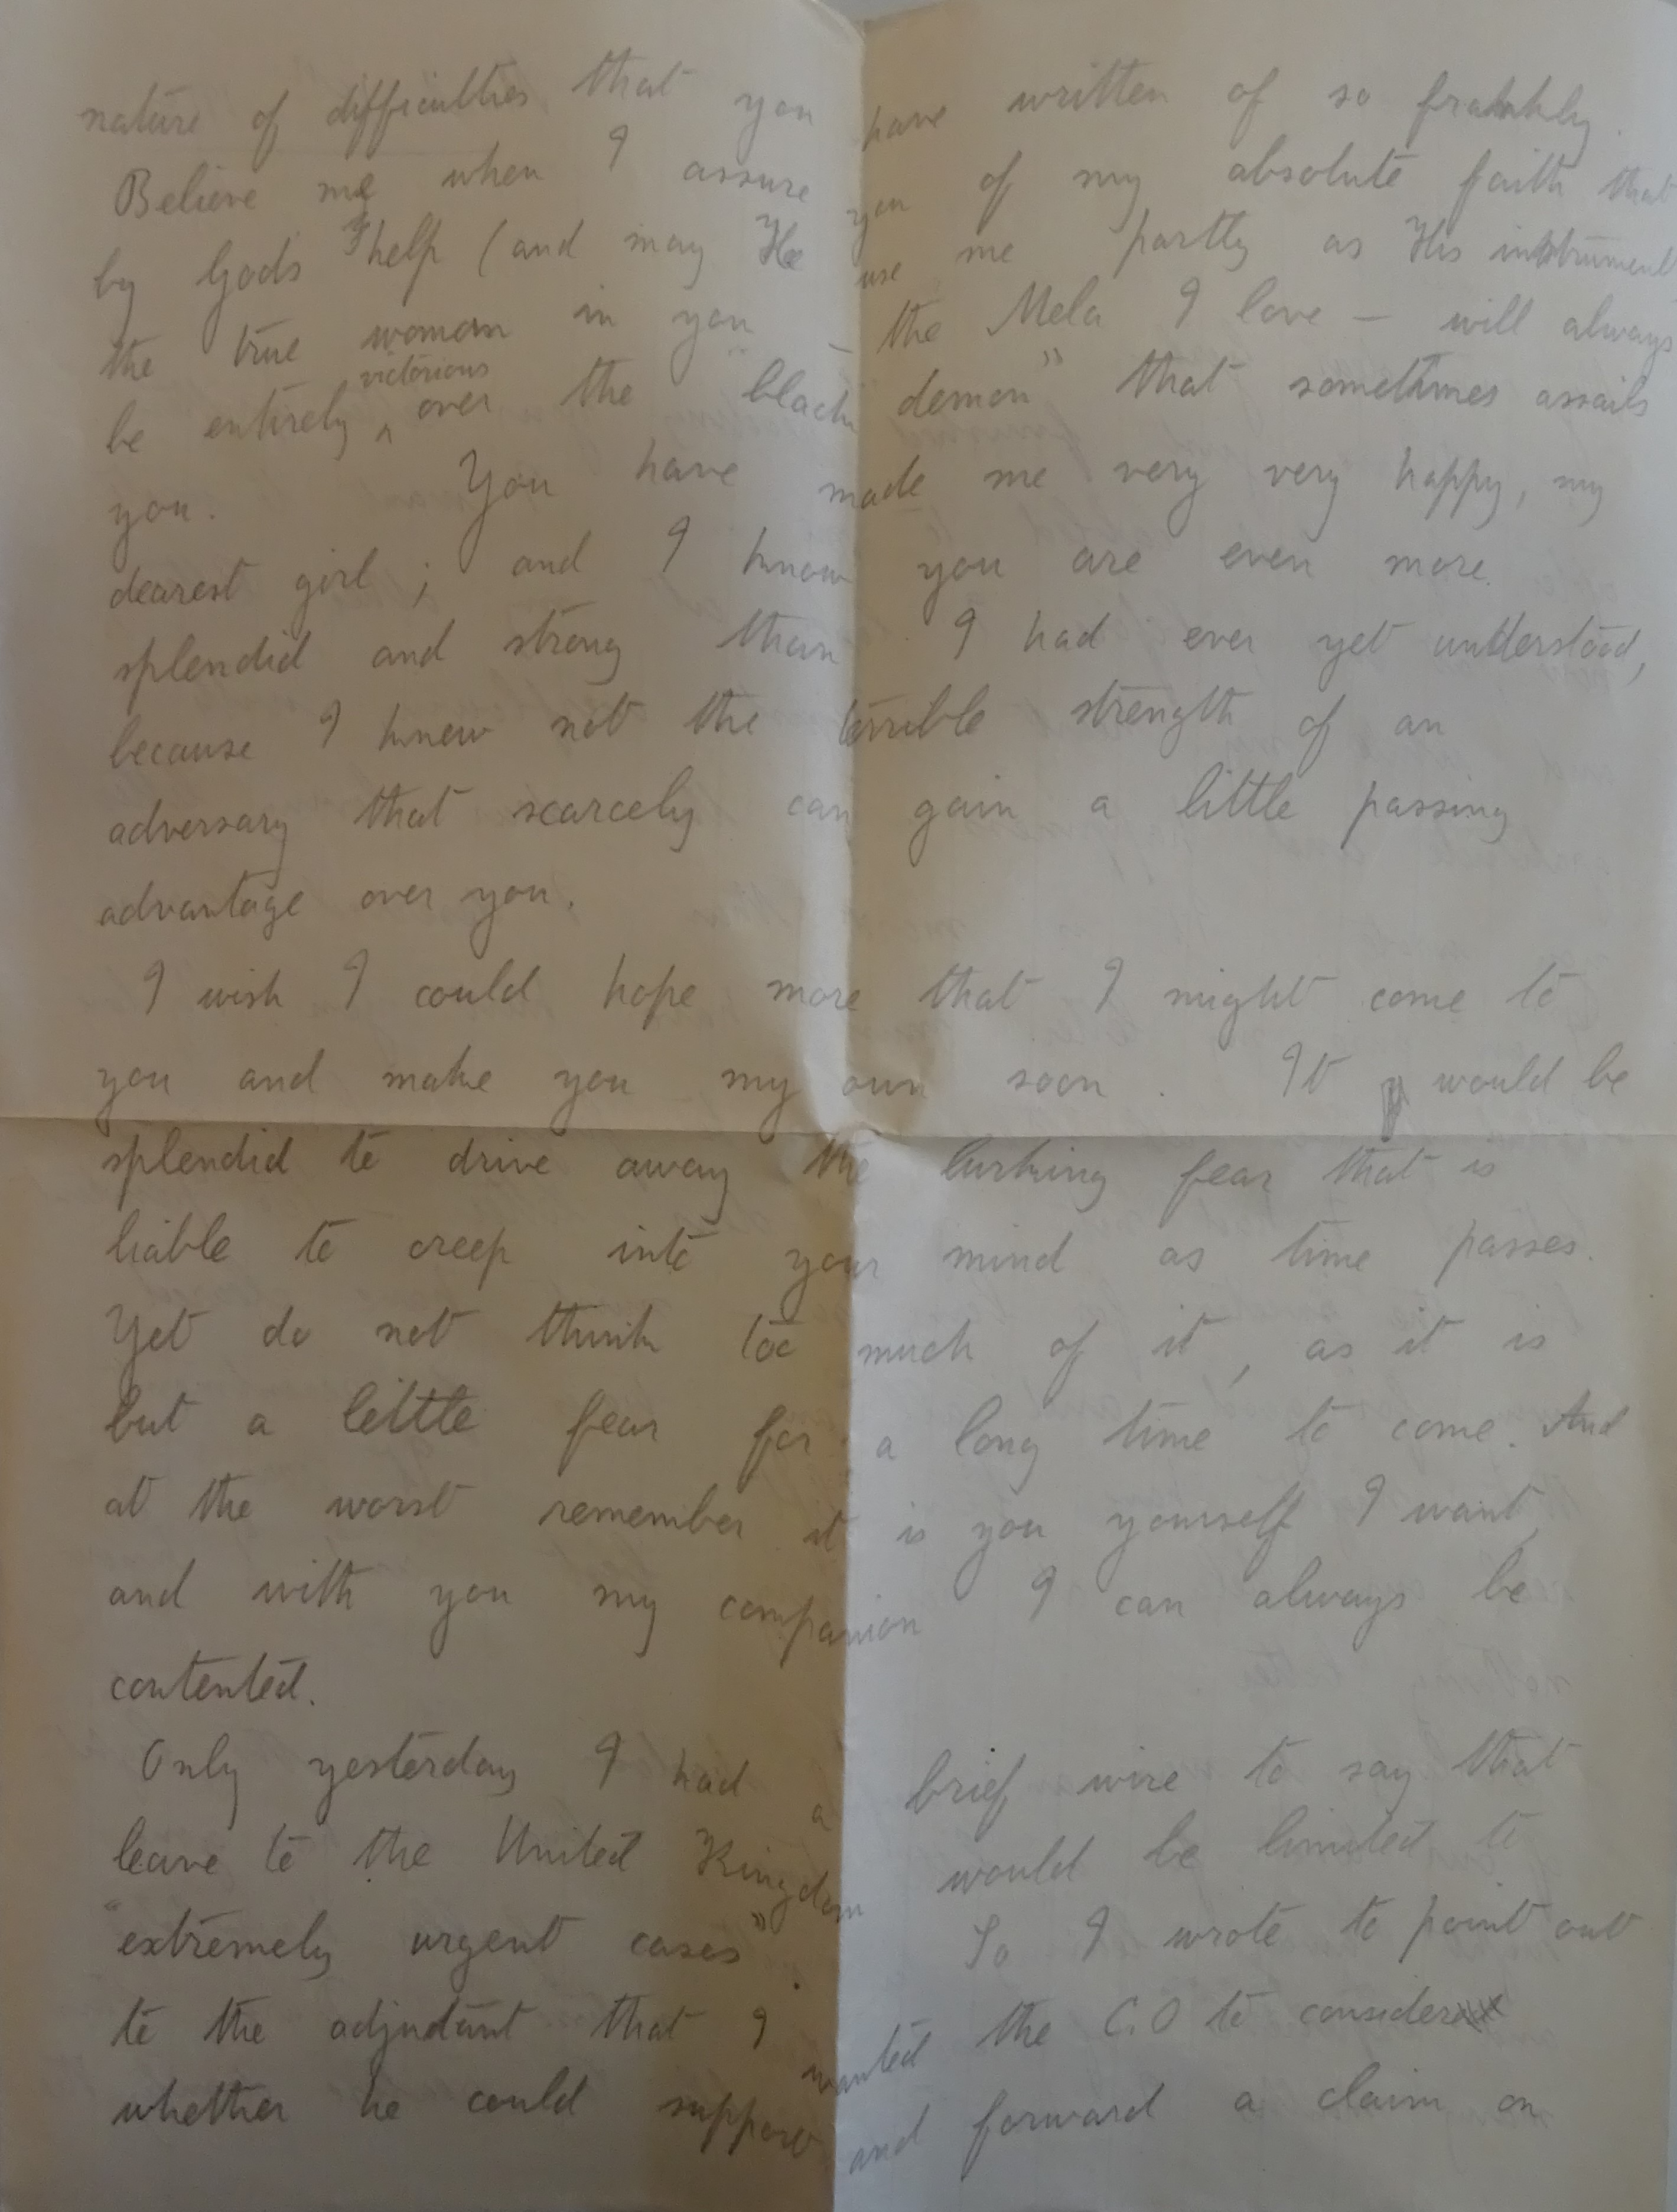 nature of difficulties that you have written of so frankly.
Believe me when I assure you of my absolute faith that
by Gods help (and may He use me partly as His instrument
the true woman in you — the Mela I love — will always
be entirely ^ victorious over the "black demon" that sometimes assails
you. You have made me very very happy, my
dearest girl; and I know you are even more
splendid and strong than I had ever yet understood,
because I knew not the terrible strength of an
adversary that scarcely can gain a little passing
advantage over you.
I wish I could hope more that I might come to
you and make you my own soon. It would be
splendid to drive away the lurking fear that is
liable to creep into your mind as time passes.
Yet do not think too much of it, as it is
but a little fear for a long time to come. And
at the worst remember it is you yourself I want,
and with you my companion I can always be
contented.
Only yesterday I had a brief wire to say that
leave to the United Kingdom would be limited to
"extremely urgent cases". So I wrote to point out
to the adjutant that I wanted the C.O to consider
whether he could support and forward a claim on